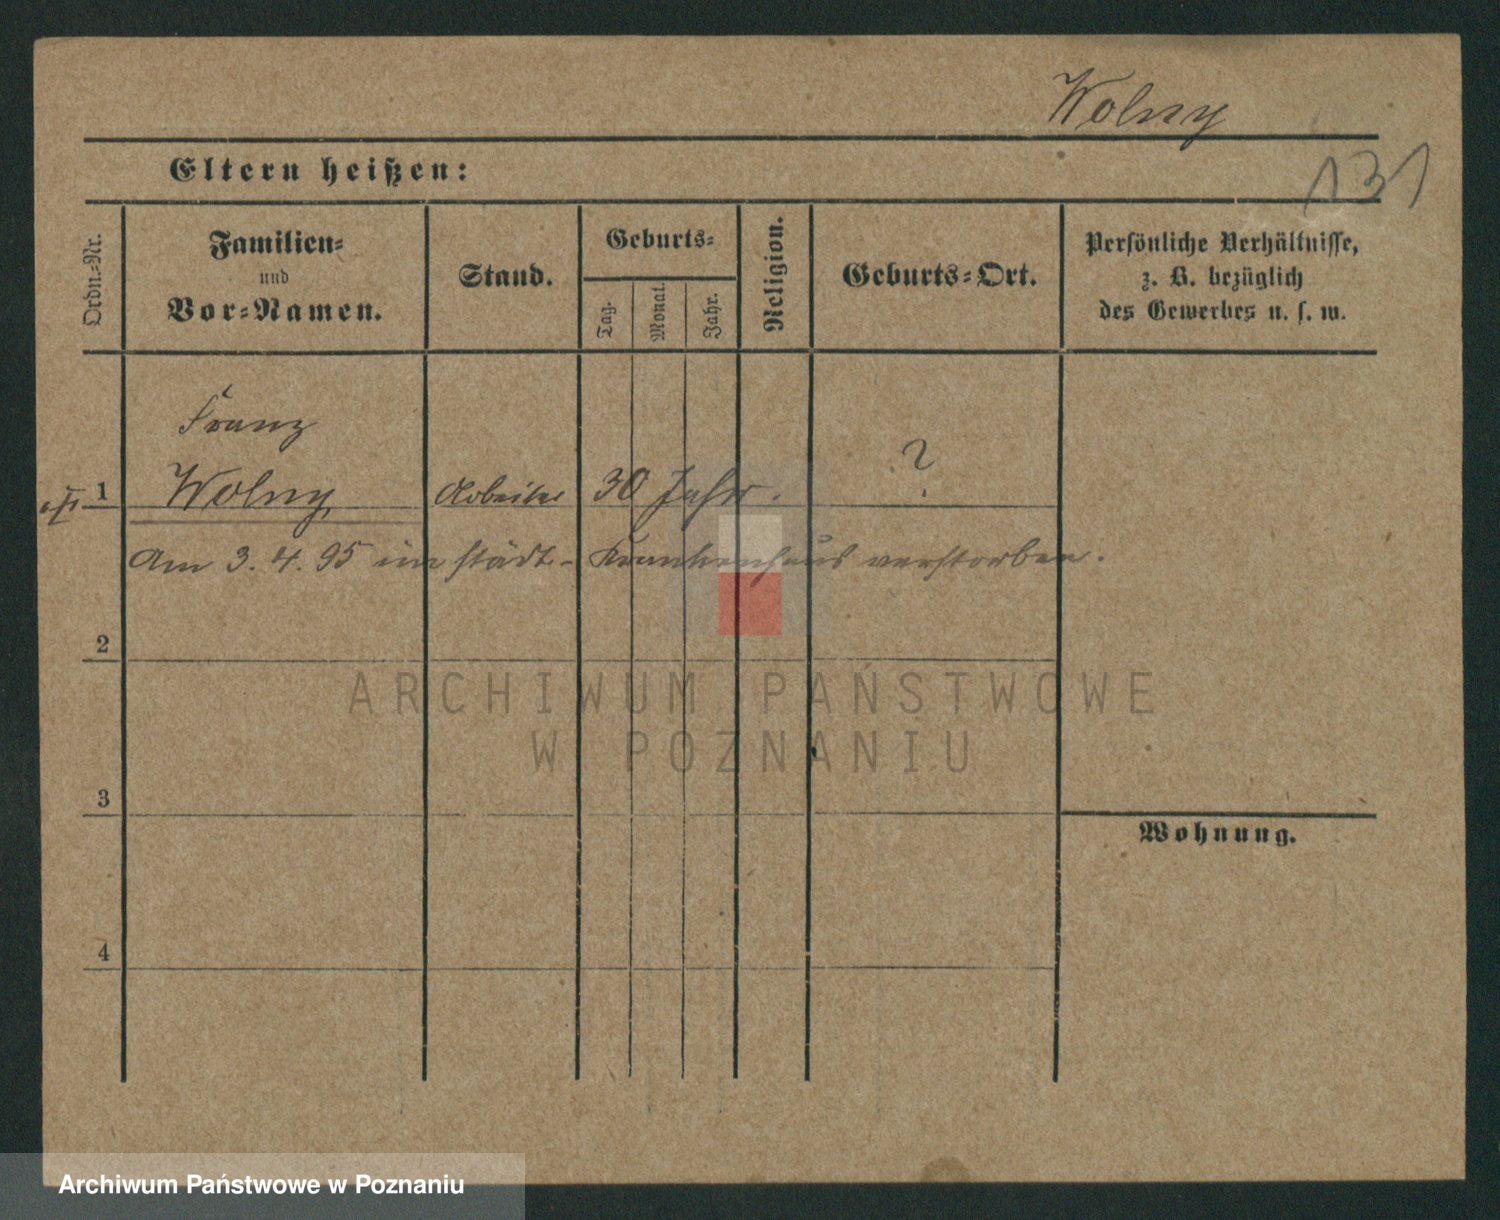 Wolny
131
Eltern heißen:
Ordn.-Nr.
Familien-
und
Vor-Namen.
Stand.
Geburts-
Tag.
Monat.
Jahr.
Religion.
Geburts-Ort.
Persönliche Verhältnisse,
z. B. bezüglich
des Gewerbes u. s. w.
Franz
1 Wolny Arbeiter 30 Jahr. ?
Am 3. 4. 95 im städt- Krankenhaus verstorben.
2
ARCHIWUM PAŃSTWOWE
W POZNANIU
3
Wohnung.
4
Archiwum Państwowe w Poznaniu